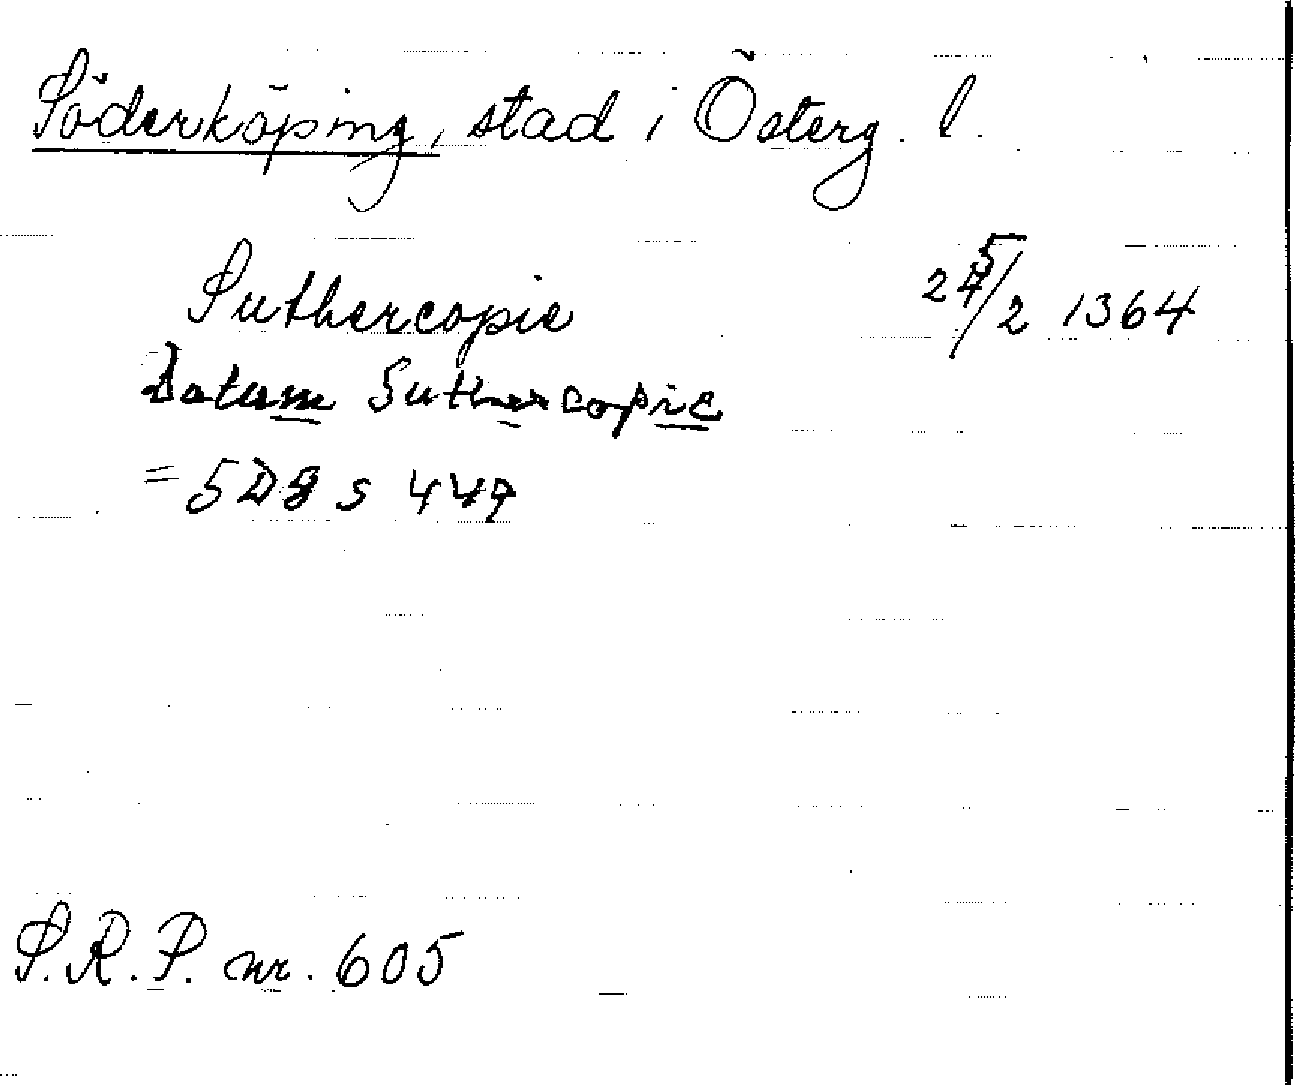 Söderköping, stad i Österg. l.
Suthercopie 25/2 1364
Datum Suthercopie
= 5 D8 s 449
S.R.P. nr. 605